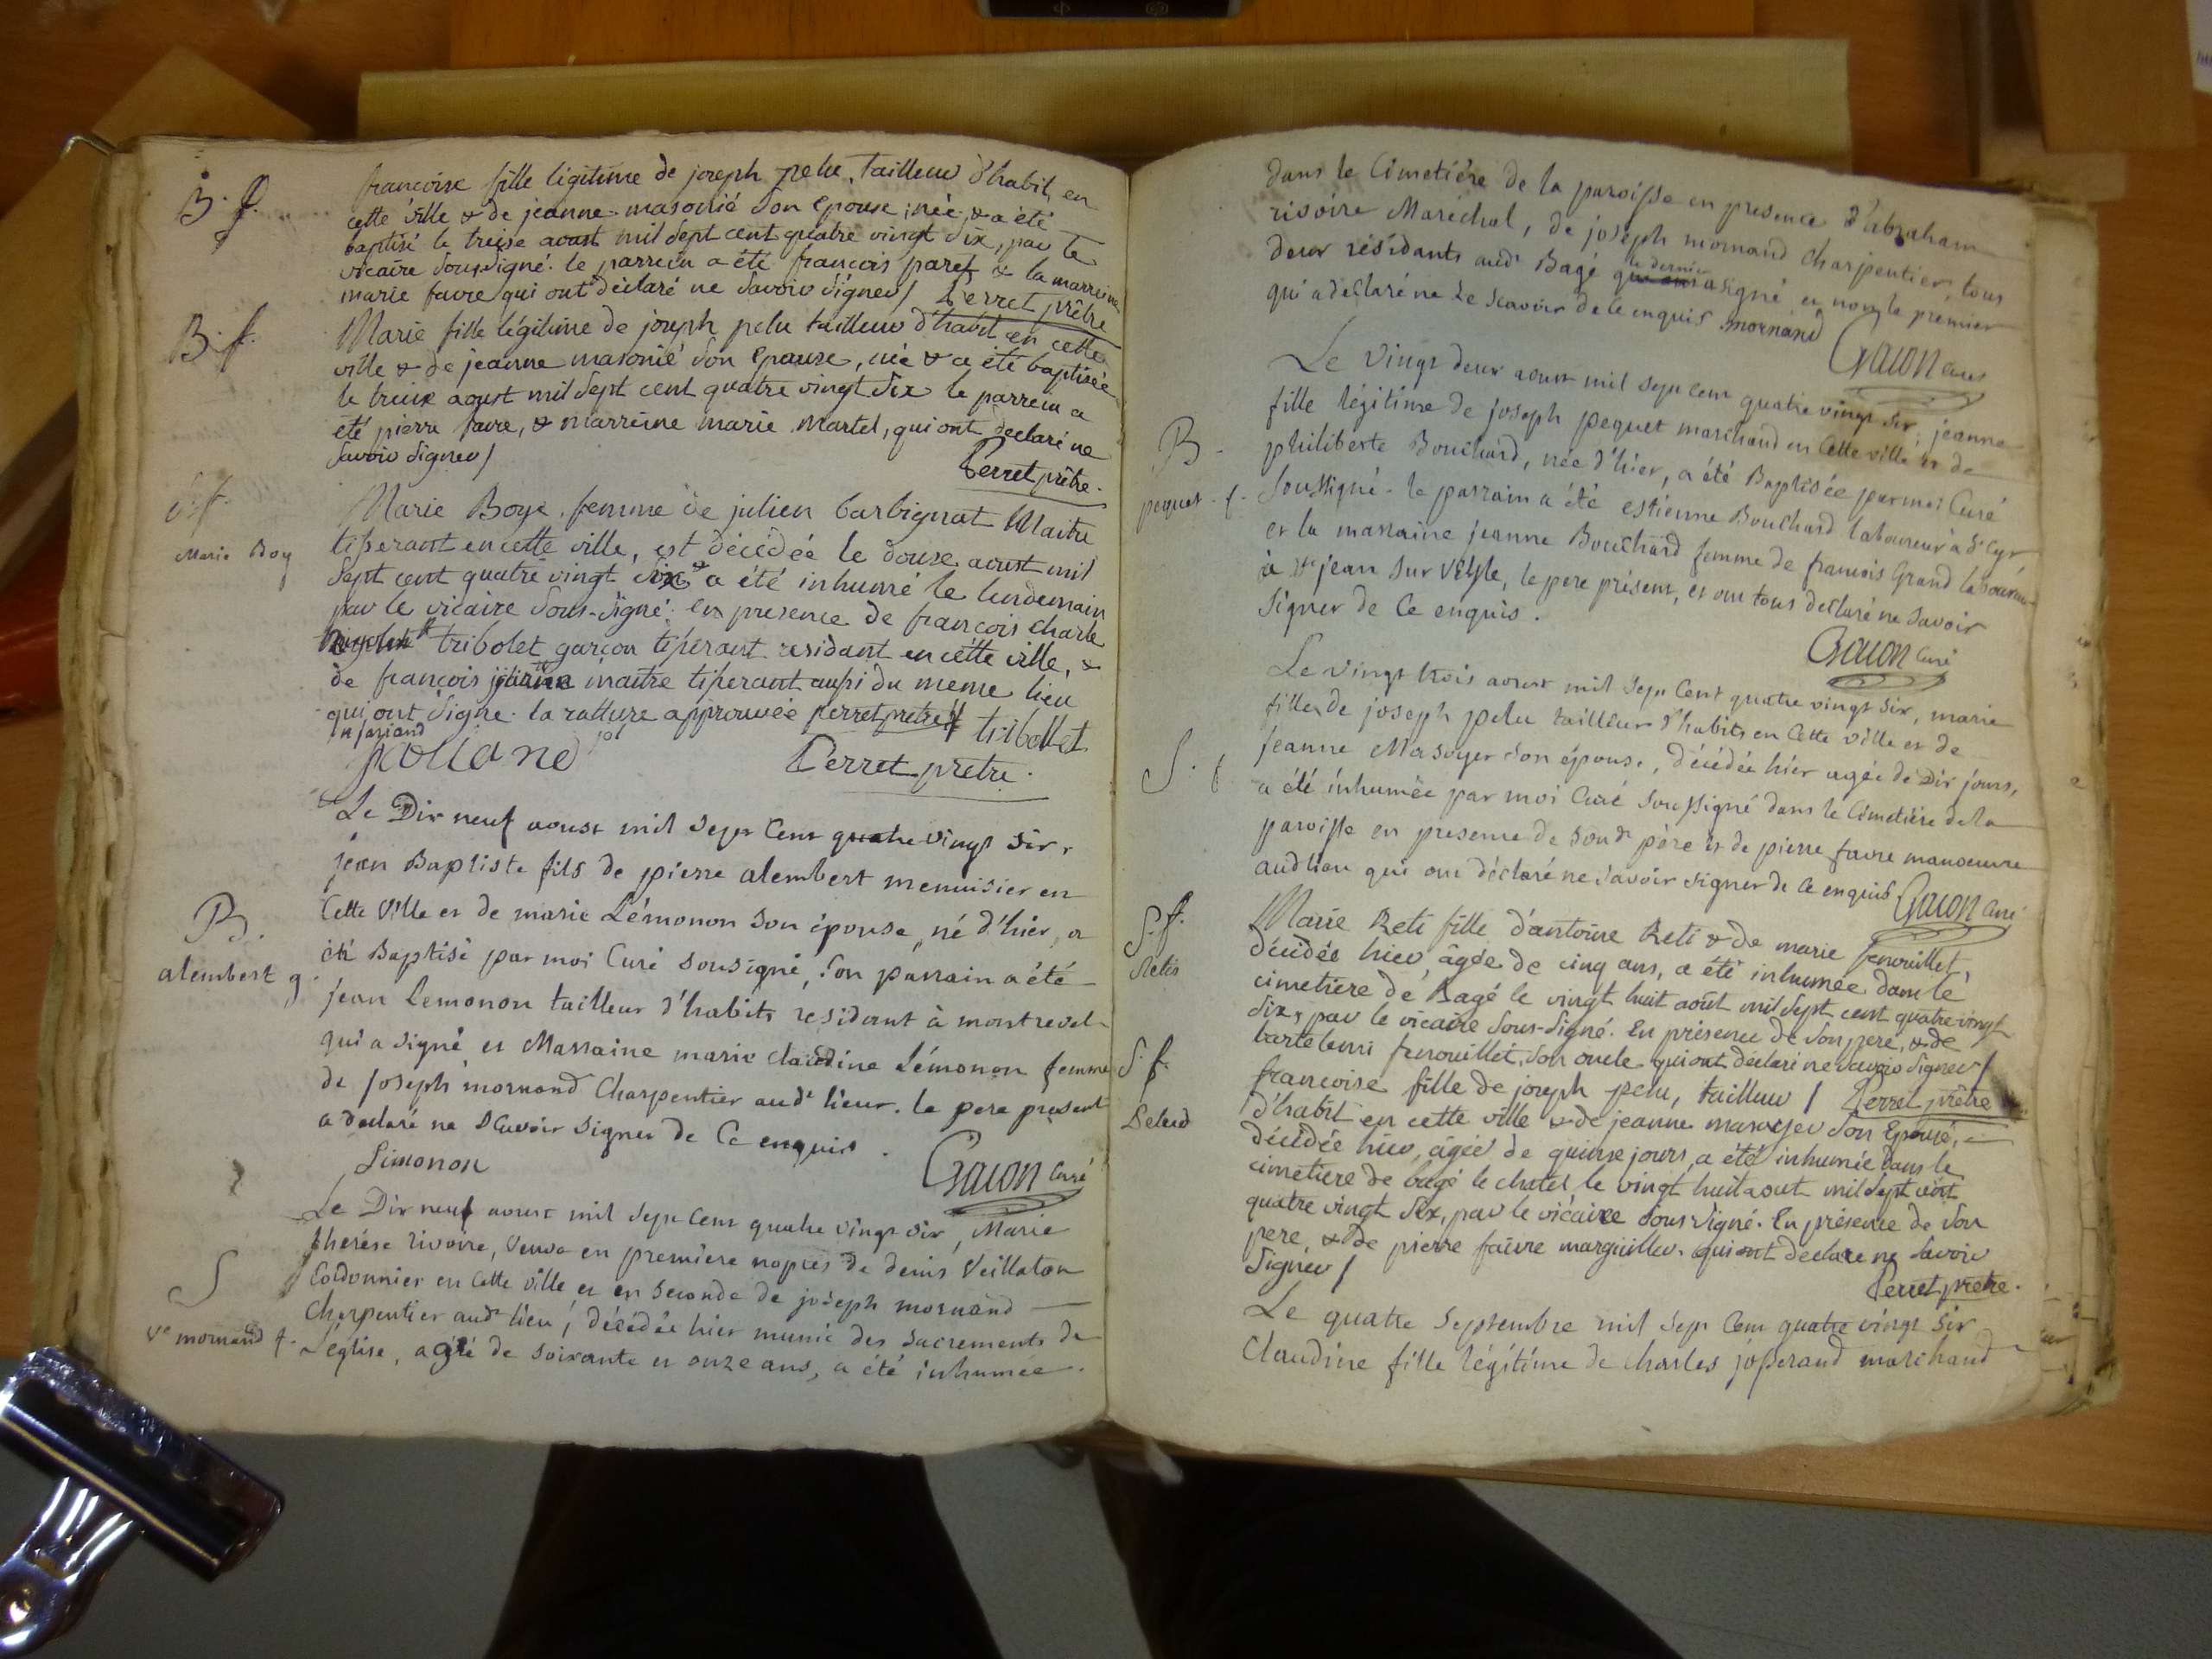 B. f.
francoise fille légitime de joseph pelu, tailleur d'habit, en
cette ville & de jeanne masonié son epouse, née, & a été
baptisé le treise aoust mil sept cent quatre vingt six, par le
vicaire sous-signé. le parrein a été françois paret & la marreine
marie favre qui ont déclaré ne savoir signer / Perret prêtre
B. f.
Marie fille légitime de joseph pelu tailleur d'habit en cette
ville & de jeanne masonié son Epouse, née & a été baptisée
le treize aoust mil sept cent quatre vingt six le parrein a
été pierre favre, & marreine marie martel, qui ont declaré ne
savoir signer /
Perret prêtre.
S. f.
Marie Boy
Marie Boye femme de julien barbignat Maitre
tisserant en cette ville, est décédée le douse aoust mil
sept cent quatre vingt six & a été inhumé le lendemain
par le vicaire sous-signé. en presence de françois charle
tribolet garçon tisserant residant en cette ville, &
de françois maitre tisserant aussi du meme lieu
qui ont signé. la ratture approuvée perret pretre // tribollet
Perret pretre.
Le Dix neuf aoust mil sept Cent quatre vingt six,
jean Baptiste fils de pierre alembert menuisier en
B.
Cette Ville et de marie Lémonon son épouse, né d'hier, a
alembert g.
été Baptisé par moi Curé sousigné, son parrain a été
jean Lemonon tailleur d'habits residant à montrevel
qui a signé et Marraine marie claudine Lémonon femme
de joseph mornand Charpentier aud.t lieux. le pere présent
a declaré ne sCavoir signer de Ce enquis.
Limonon
Gacon Curé
Le Dix neuf aoust mil sept Cent quatre vingt six, Marie
thérése rivoire, veuve en premiere nopces de denis Veillaton
S
Cordonnier en Cette ville et en seconde de joseph mornand
Charpentier aud.t lieu, décédée hier munie des sacrements de
Ve mornand f.
L'église, agée de soixante et onze ans, a été inhumee.
dans le Cimetiére de la paroisse en presence d'abraham
rivoire Maréchal, de joseph mornand charpentier, tous
deux résidants aud.t Bagé le dernier a signé et non le premier
qui a déclaré ne le scavoir de Ce enquis. mornand
Gacon Curé
Le Vingt deux aoust mil sept cent quatre vingt six, jeanne
fille légitime de joseph pequet marchand en Cette ville et de
B.
philiberte Bouchard, née d'hier, a été Baptisée par moi Curé
pequet. f.
Soussigné. le parrain a été estienne Bouchard laboureur à St Cyr
et la marraine jeanne Bouchard femme de francois Grand laboureur
à St jean sur Veyle, le pere présent, et ont tous declaré ne savoir
signer de Ce enquis.
Gacon Curé
Le vingt trois aoust mil sept Cent quatre vingt six, marie
fille de joseph pelu tailleur d'habits en Cette ville et de
S. f
jeanne Masoyer son épouse, décédée hier agée de Dix jours,
a été inhumée par moi Curé soussigné dans le Cimetiére de la
paroisse en presence de sond.t père et de pierre favre manoeuvre
aud lieu qui ont déclaré ne savoir signer de Ce enquis
Gacon Curé
S. f.
Retis
Marie Reti fille d'antoine Reti & de marie fenouillet,
décédée hier âgée de cinq ans, a été inhumée dans le
cimetiere de Bagé le vingt huit août mil sept cent quatre vingt
six, par le vicaire sous-signé. En présence de son pere, & de
bartelemi fenouillet, son oncle qui ont déclaré ne savoir signer /
Perret prêtre
S. f.
Pelud
francoise fille de joseph pelu, tailleur /
d'habit en cette ville & de jeanne masoyer son Epouse,
décédée hier, âgée de quinse jours, a été inhumée dans le
cimetiere de bagé le chatel le vingt huit aout mil sept cent
quatre vingt six, par le vicaire sous signé. En présence de son
pere, & de pierre faivre marguiller. qui ont declare ne savoir
signer /
Perret pretre.
Le quatre septembre mil sept Cent quatre vingt six
Claudine fille légitime de charles josserand marchand